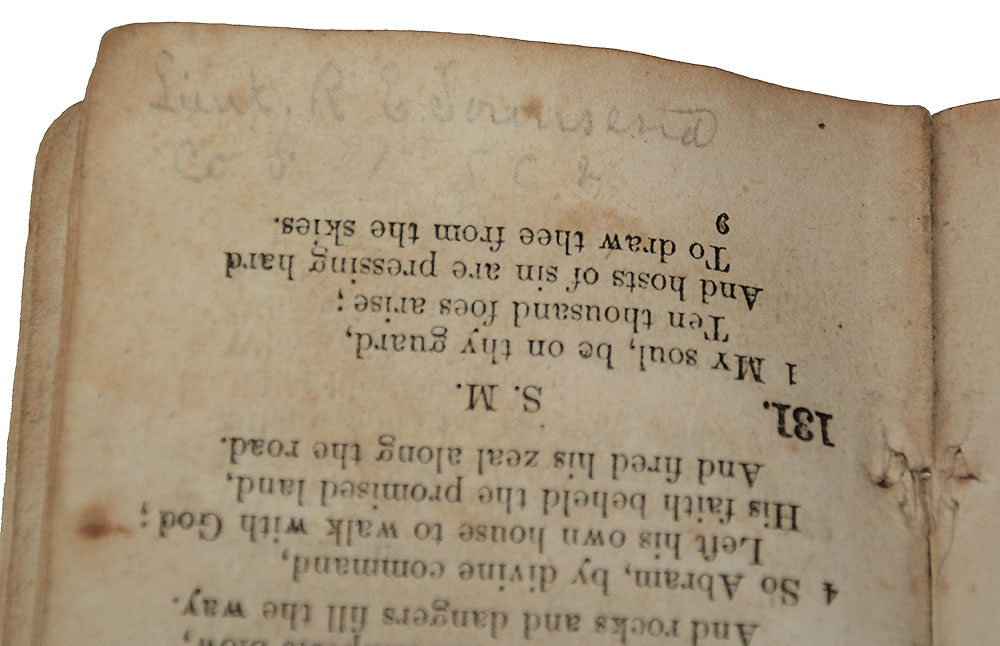 Lieut. R E Townsend
Co F 21st S C V
blow,
And rocks and dangers fill the way.
4 So Abram, by divine command,
Left his own house to walk with God;
His faith beheld the promised land,
And fired his zeal along the road.
131.
S. M.
1 My soul, be on thy guard,
Ten thousand foes arise;
And hosts of sin are pressing hard
To draw thee from the skies.
6